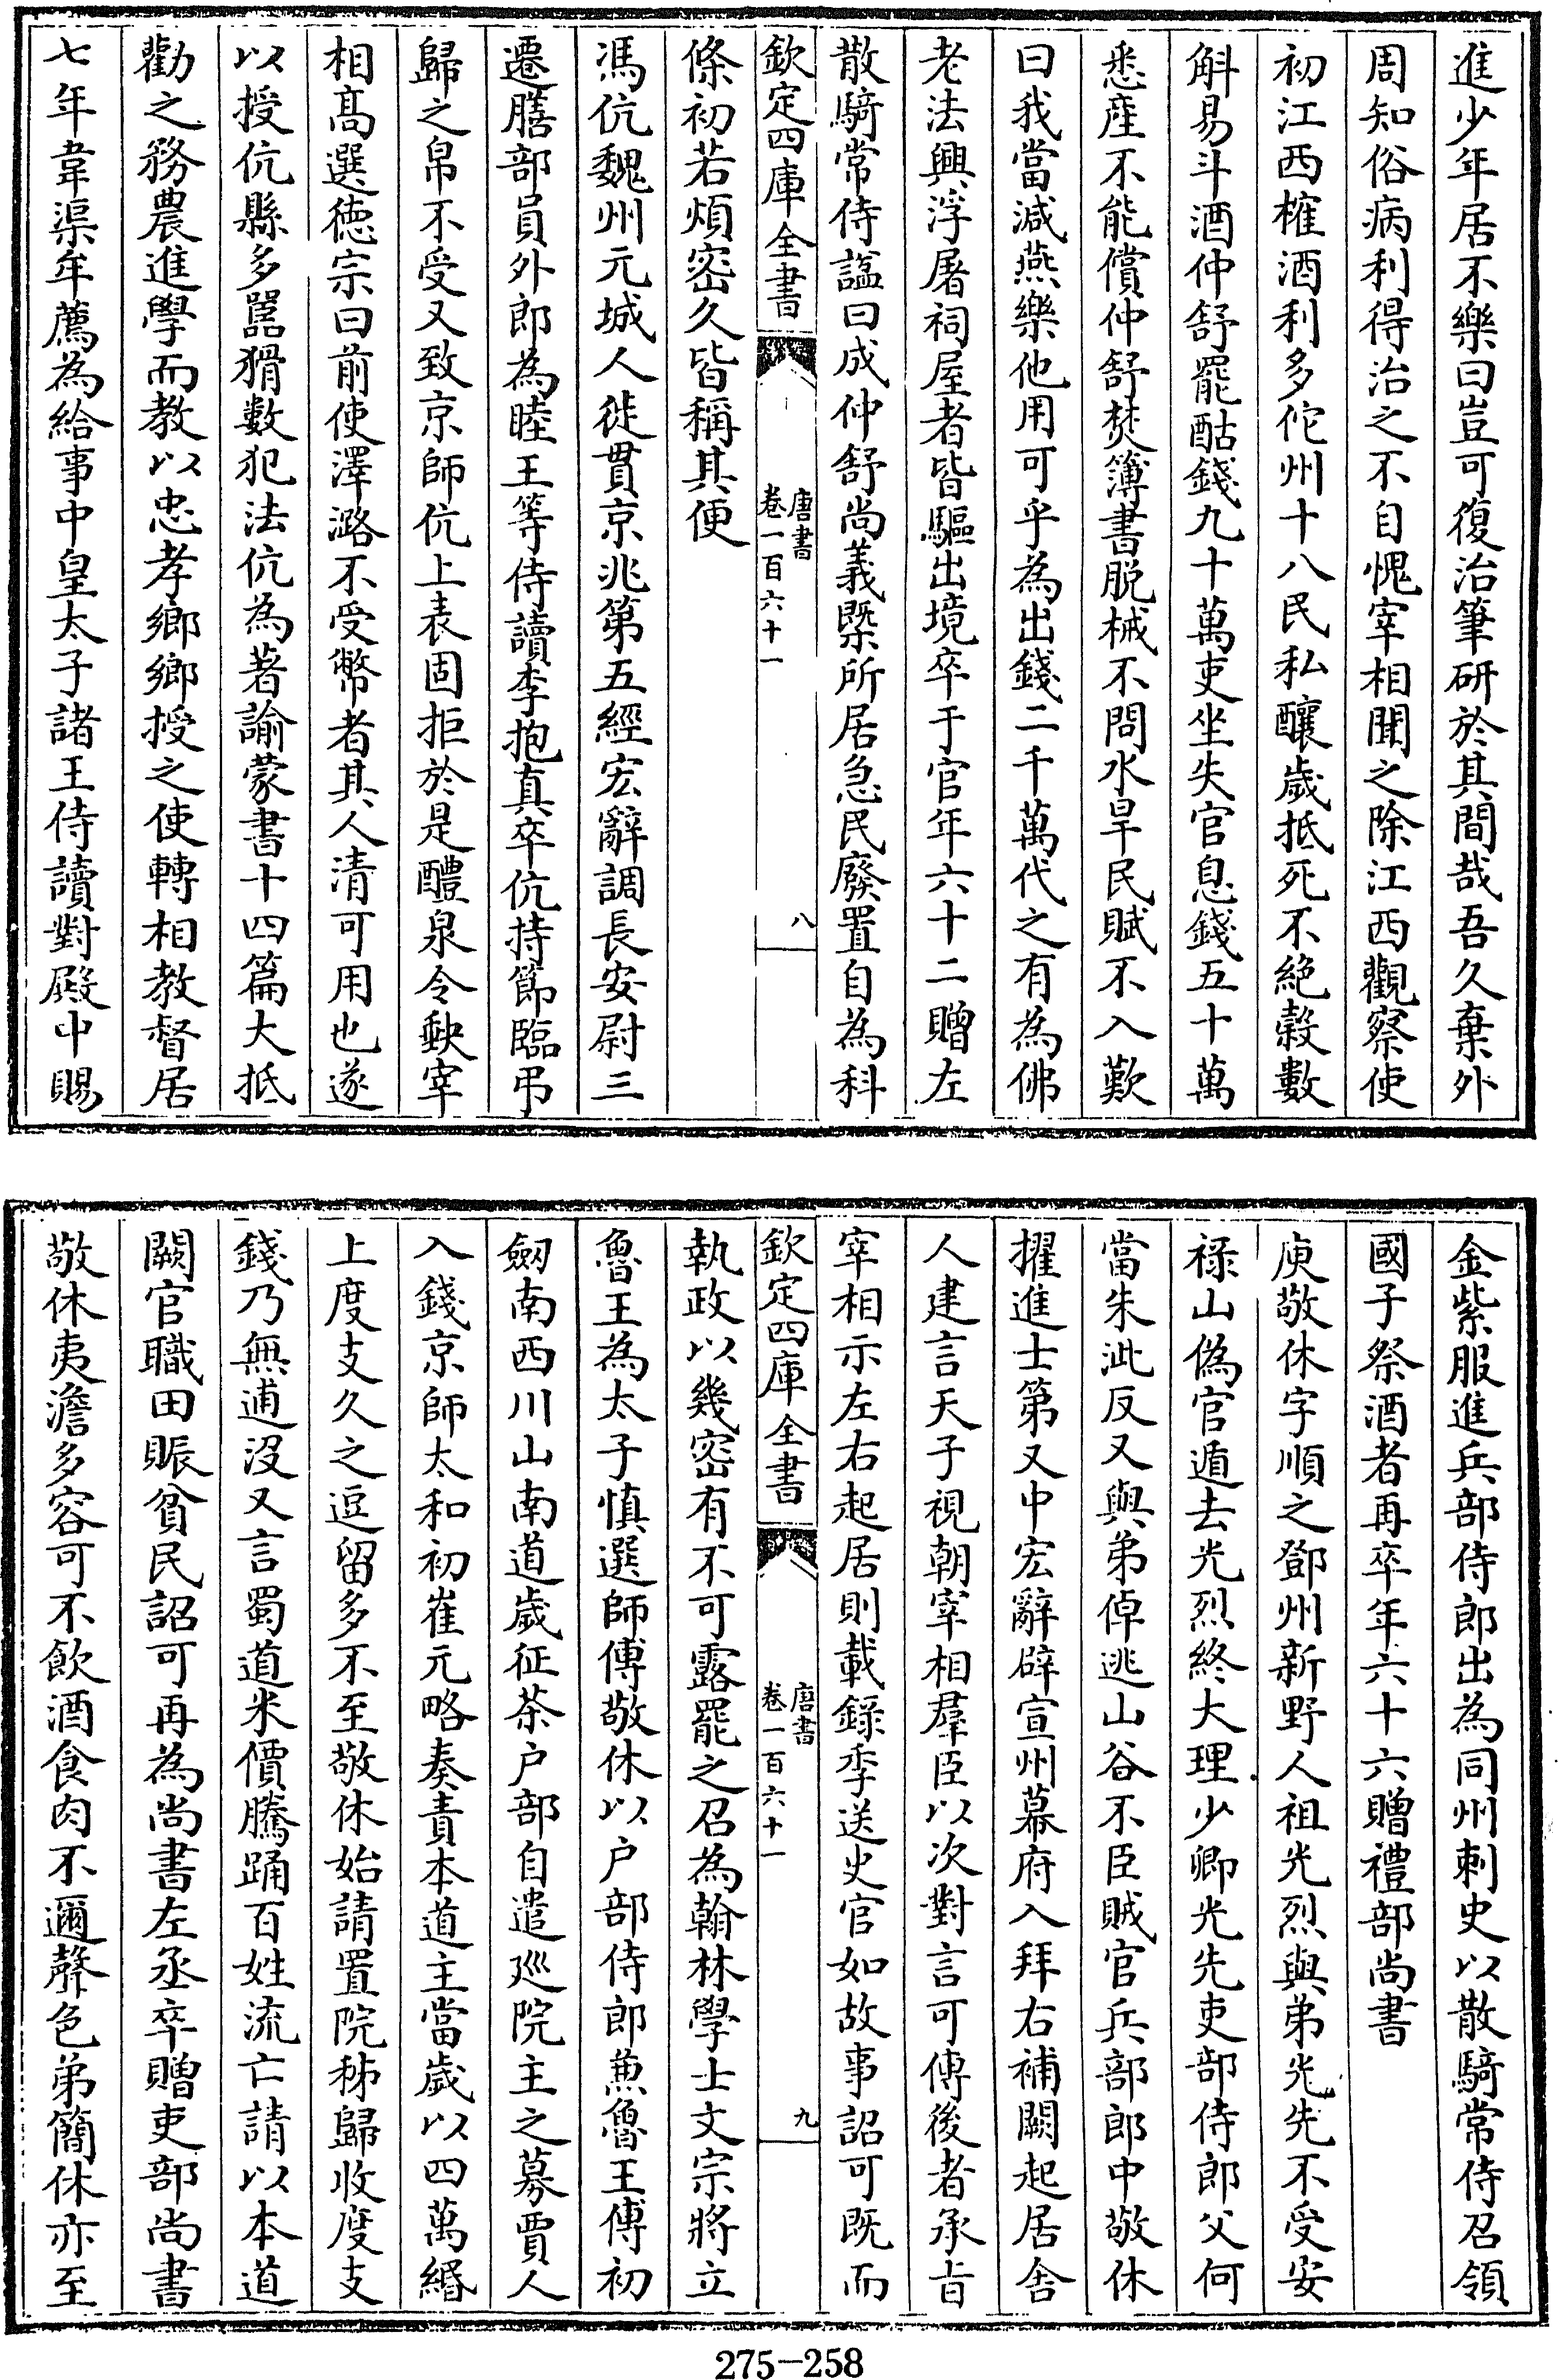 進少年居不樂曰豈可復治筆研於其間哉吾久棄外
周知俗病利得治之不自愧宰相聞之除江西觀察使
初江西榷酒利多佗州十八民私釀歲抵死不絶穀數
斛易斗酒仲舒罷酤錢九十萬吏坐失官息錢五十萬
悉産不能償仲舒焚簿書脱械不問水旱民賦不入歎
曰我當減燕樂他用可乎為出錢二千萬代之有為佛
老法興浮屠祠屋者皆驅出境卒于官年六十二贈左
散騎常侍諡曰成仲舒尚義槩所居急民廢置自為科
欽定四庫全書
唐書
卷一百六十一
八
條初若煩密久皆稱其便
馮伉魏州元城人徙貫京兆第五經宏辭調長安尉三
遷膳部員外郎為睦王等侍讀李抱真卒伉持節臨弔
歸之帛不受又致京師伉上表固拒於是醴泉令缺宰
相髙選徳宗曰前使澤潞不受幣者其人清可用也遂
以授伉縣多嚚猾數犯法伉為著諭蒙書十四篇大抵
勸之務農進學而教以忠孝鄉鄉授之使轉相教督居
七年韋渠牟薦為給事中皇太子諸王侍讀對殿中賜
金紫服進兵部侍郎出為同州刺史以散騎常侍召領
國子祭酒者再卒年六十六贈禮部尚書
庾敬休字順之鄧州新野人祖光烈與弟光先不受安
祿山偽官遁去光烈終大理少卿光先吏部侍郎父何
當朱泚反又與弟倬逃山谷不臣賊官兵部郎中敬休
擢進士第又中宏辭辟宣州幕府入拜右補闕起居舍
人建言天子視朝宰相羣臣以次對言可傳後者承旨
宰相示左右起居則載錄季送史官如故事詔可既而
欽定四庫全書
唐書
卷一百六十一
九
執政以幾密有不可露罷之召為翰林學士文宗將立
魯王為太子慎選師傅敬休以户部侍郎兼魯王傅初
劒南西川山南道歲征茶户部自遣廵院主之募賈人
入錢京師太和初崔元略奏責本道主當歲以四萬緡
上度支久之逗留多不至敬休始請置院秭歸收度支
錢乃無逋没又言蜀道米價騰踊百姓流亡請以本道
闕官職田賑貧民詔可再為尚書左丞卒贈吏部尚書
敬休夷澹多容可不飲酒食肉不邇聲色弟簡休亦至
275-258